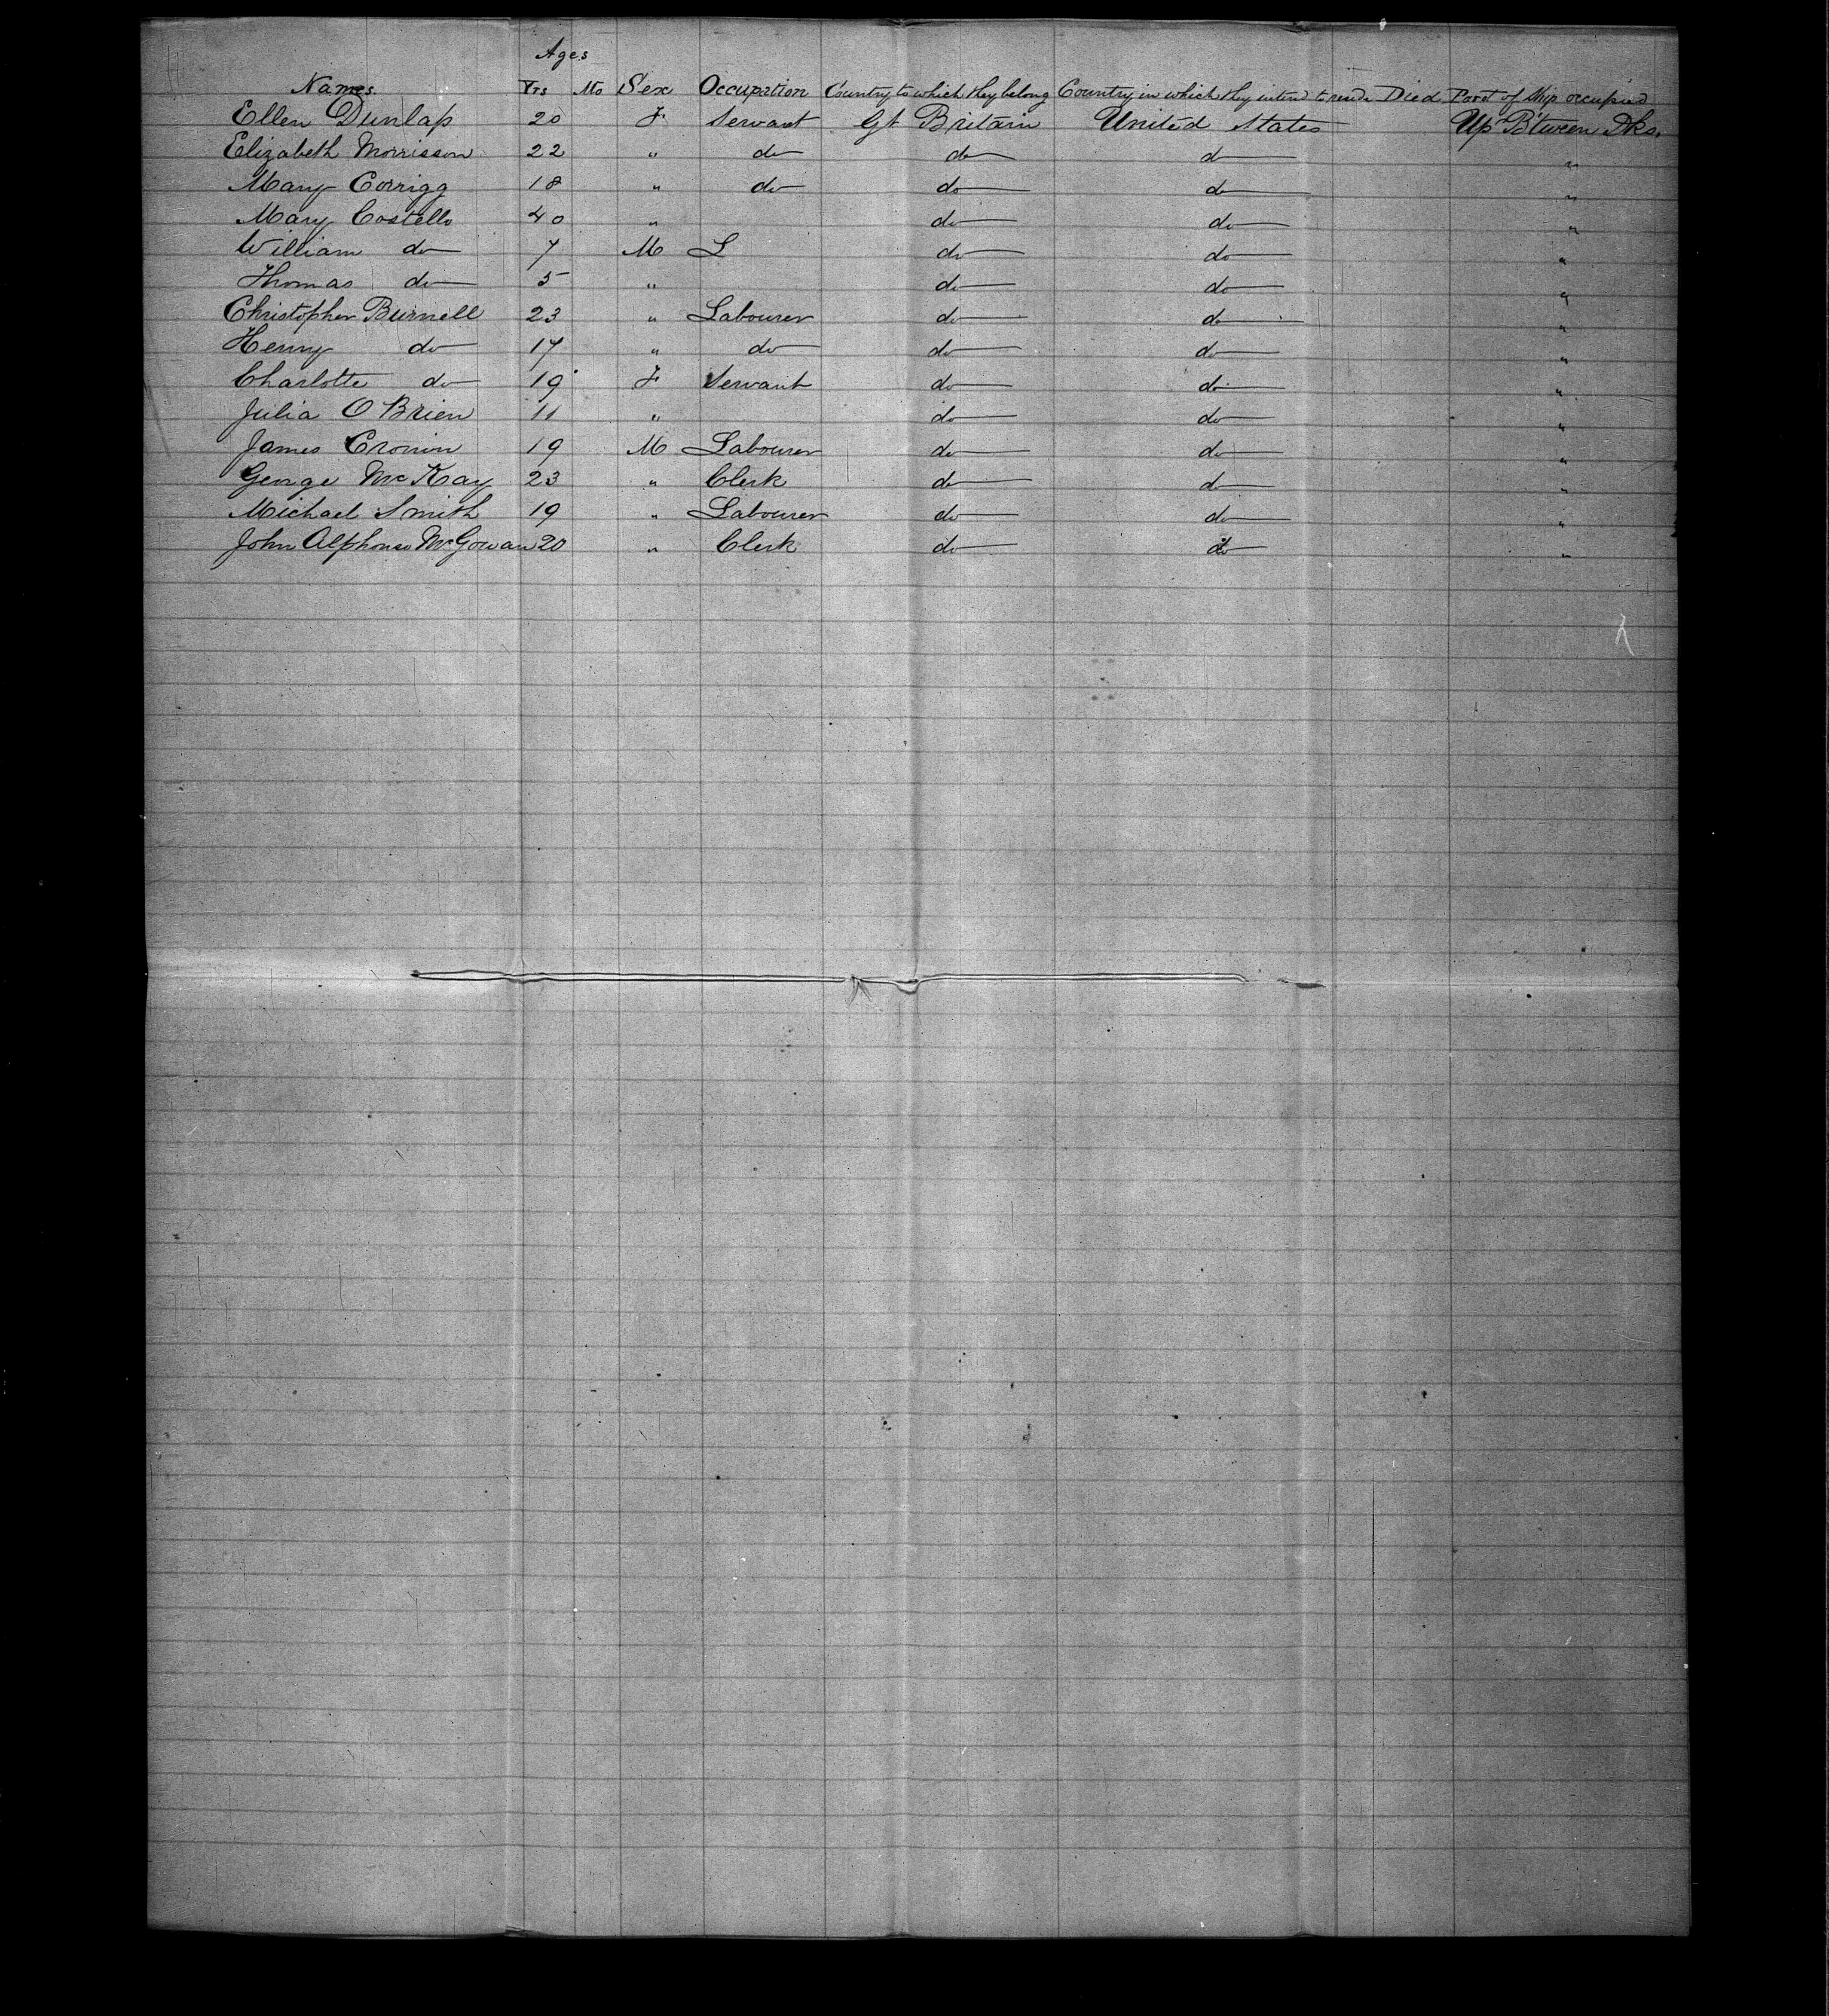 Ages
Names. Yrs Mo Sex Occupation Country to which they belong Country in which they intend to reside Died Part of Ship occupied
Ellen Dunlap 20 F Servant Gt Britain United States Up B'tween Dks.
Elizabeth Morrisson 22 " do do do "
Mary Corrigg 18 " do do do "
Mary Costello 40 " do do "
William do 7 M L do do "
Thomas do 5 " do do "
Christopher Burnell 23 " Labourer do do "
Henry do 17 " do do do "
Charlotte do 19 F Servant do do "
Julia O Brien 11 " do do "
James Cronin 19 M Labourer do do "
George McKay 23 " Clerk do do "
Michael Smith 19 " Labourer do do "
John Alphonso McGowan 20 " Clerk do do "